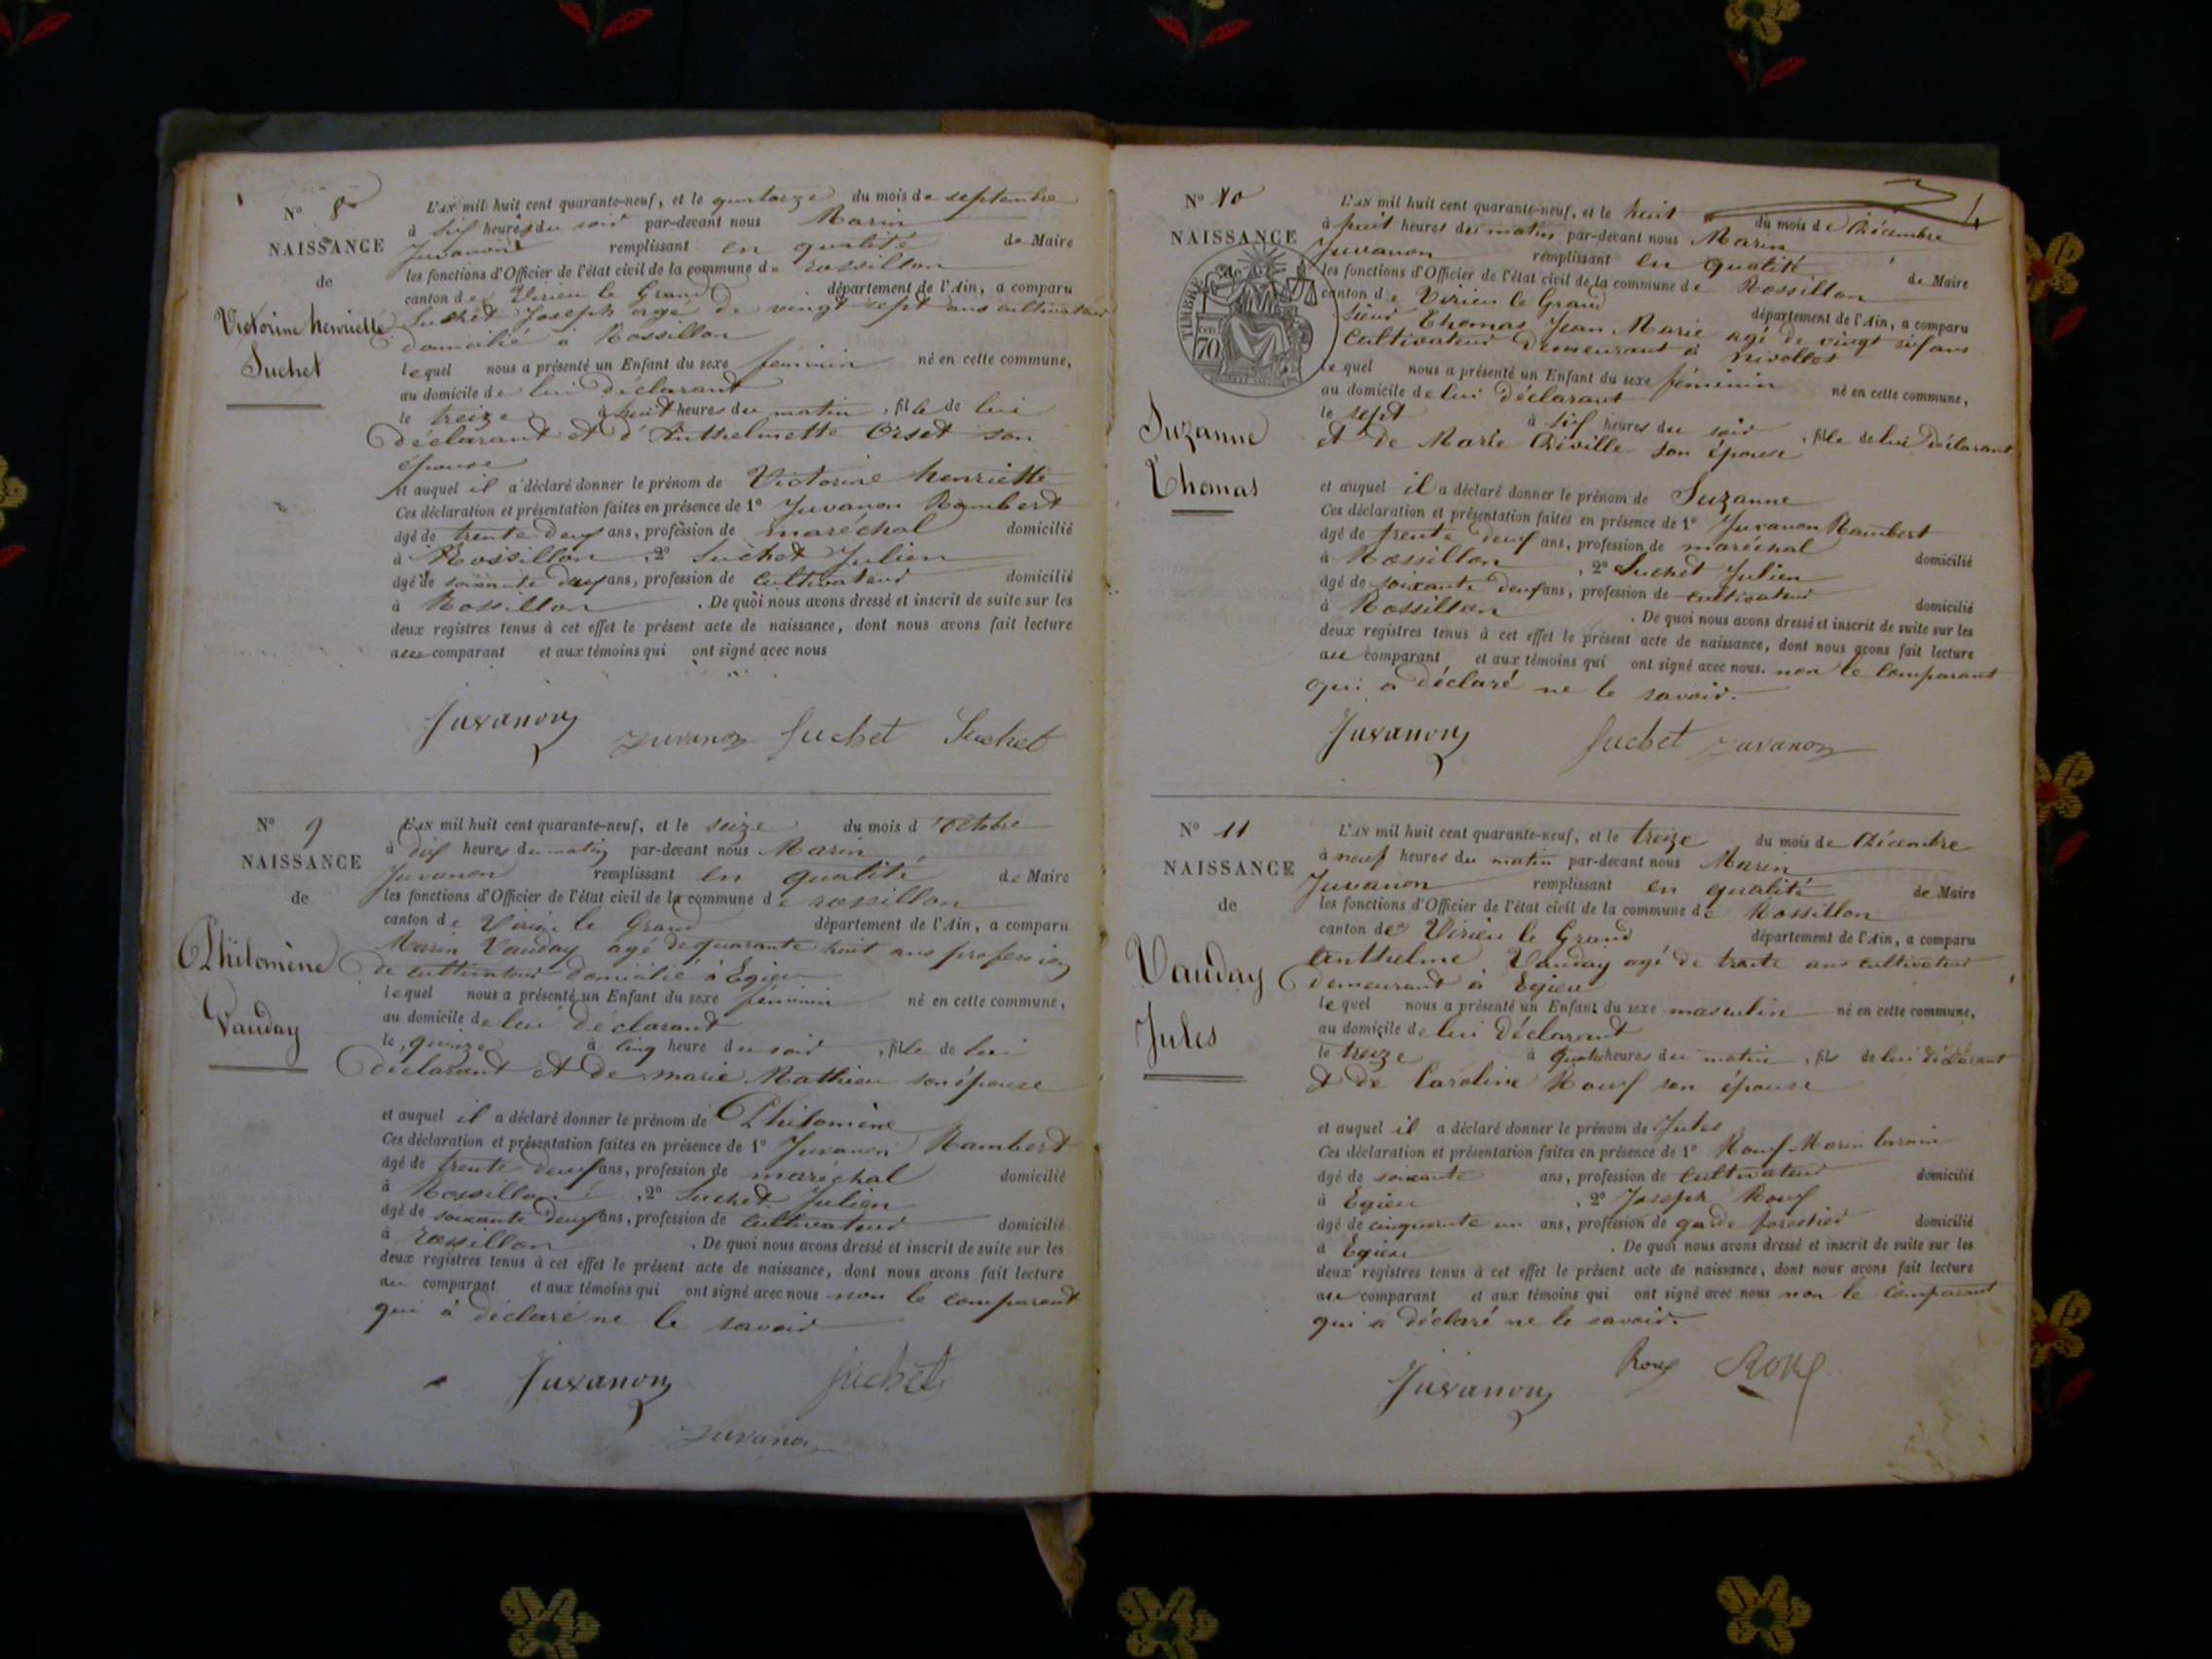 N° 8
NAISSANCE
de
Victorine henriette
Suchet
L'AN mil huit cent quarante-neuf, et le quatorze du mois de septembre
à six heures du soir par-devant nous Marin
Juvanon remplissant en qualité de Maire
les fonctions d'Officier de l'état civil de la commune de rossillon
canton de Virieu le Grand département de l'Ain, a comparu
Suchet Joseph agé de vingt sept ans cultivateur
domicilié à Rossillon
lequel nous a présenté un Enfant du sexe féminin né en cette commune,
au domicile de lui déclarant
le treize à huit heures du matin, fille de lui
déclarant et d'Anthelmette Orset son
épouse
et auquel il a déclaré donner le prénom de Victorine henriette
Ces déclaration et présentation faites en présence de 1° Juvanon Rambert
âgé de trente deux ans, profession de maréchal domicilié
à Rossillon, 2° Suchet Julien
âgé de soixante deux ans, profession de Cultivateur domicilié
à Rossillon. De quoi nous avons dressé et inscrit de suite sur les
deux registres tenus à cet effet le présent acte de naissance, dont nous avons fait lecture
au comparant et aux témoins qui ont signé avec nous
Juvanon Juvanon Suchet Suchet
N° 9
NAISSANCE
de
Philomène
Vauday
L'AN mil huit cent quarante-neuf, et le seize du mois d'Octobre
à dix heures du matin par-devant nous Marin
Juvanon remplissant en qualité de Maire
les fonctions d'Officier de l'état civil de la commune de rossillon
canton de Virieu le Grand département de l'Ain, a comparu
Marin Vauday agé de quarante huit ans profession
de cultivateur domicilié à Egieu
lequel nous a présenté un Enfant du sexe féminin né en cette commune,
au domicile de lui déclarant
le quinze à cinq heure du soir, fille de lui
déclarant et de marie Mathieu son épouse
et auquel il a déclaré donner le prénom de Philomène
Ces déclaration et présentation faites en présence de 1° Juvanon Rambert
âgé de trente deux ans, profession de maréchal domicilié
à Rossillon, 2° Suchet Julien
âgé de soixante deux ans, profession de Cultivateur domicilié
à rossillon. De quoi nous avons dressé et inscrit de suite sur les
deux registres tenus à cet effet le présent acte de naissance, dont nous avons fait lecture
au comparant et aux témoins qui ont signé avec nous non le comparant
qui à déclaré ne le savoir
Juvanon Suchet
Juvanon
4
N° 10
NAISSANCE
TIMBRE
70
Suzanne
Thomas
L'AN mil huit cent quarante-neuf, et le huit du mois de Décembre
à huit heures du matin par-devant nous Marin
Juvanon remplissant en qualité de Maire
les fonctions d'Officier de l'état civil de la commune de Rossillon
canton de Virieu le Grand département de l'Ain, a comparu
sieur Thomas Jean Marie agé de vingt six ans
Cultivateur demeurant à nivollet
lequel nous a présenté un Enfant du sexe féminin né en cette commune,
au domicile de lui déclarant
le sept à six heures du soir, fille de lui déclarant
et de Marie Déville son épouse
et auquel il a déclaré donner le prénom de Suzanne
Ces déclaration et présentation faites en présence de 1° Juvanon Rambert
âgé de trente deux ans, profession de maréchal domicilié
à Rossillon, 2° Suchet Julien
âgé de soixante deux ans, profession de cultivateur domicilié
à Rossillon. De quoi nous avons dressé et inscrit de suite sur les
deux registres tenus à cet effet le présent acte de naissance, dont nous avons fait lecture
au comparant et aux témoins qui ont signé avec nous. non le Comparant
qui a déclaré ne le savoir.
Juvanon Suchet Juvanon
N° 11
NAISSANCE
de
Vauday
Jules
L'AN mil huit cent quarante-neuf, et le treize du mois de Décembre
à neuf heures du matin par-devant nous Marin
Juvanon remplissant en qualité de Maire
les fonctions d'Officier de l'état civil de la commune de Rossillon
canton de Virieu le Grand département de l'Ain, a comparu
Anthelme Vauday agé de trente ans cultivateur
demeurant à Egieu
lequel nous a présenté un Enfant du sexe masculin né en cette commune,
au domicile de lui Déclarant
le treize à quatre heures du matin, fils de lui déclarant
et de Caroline Roux son épouse
et auquel il a déclaré donner le prénom de Jules
Ces déclaration et présentation faites en présence de 1° Roux Marin
âgé de soixante ans, profession de Cultivateur domicilié
à Egieu, 2° Joseph Roux
âgé de cinquante un ans, profession de garde forestier domicilié
à Egieu. De quoi nous avons dressé et inscrit de suite sur les
deux registres tenus à cet effet le présent acte de naissance, dont nous avons fait lecture
au comparant et aux témoins qui ont signé avec nous non le Comparant
qui a déclaré ne le savoir.
Juvanon Roux Roux